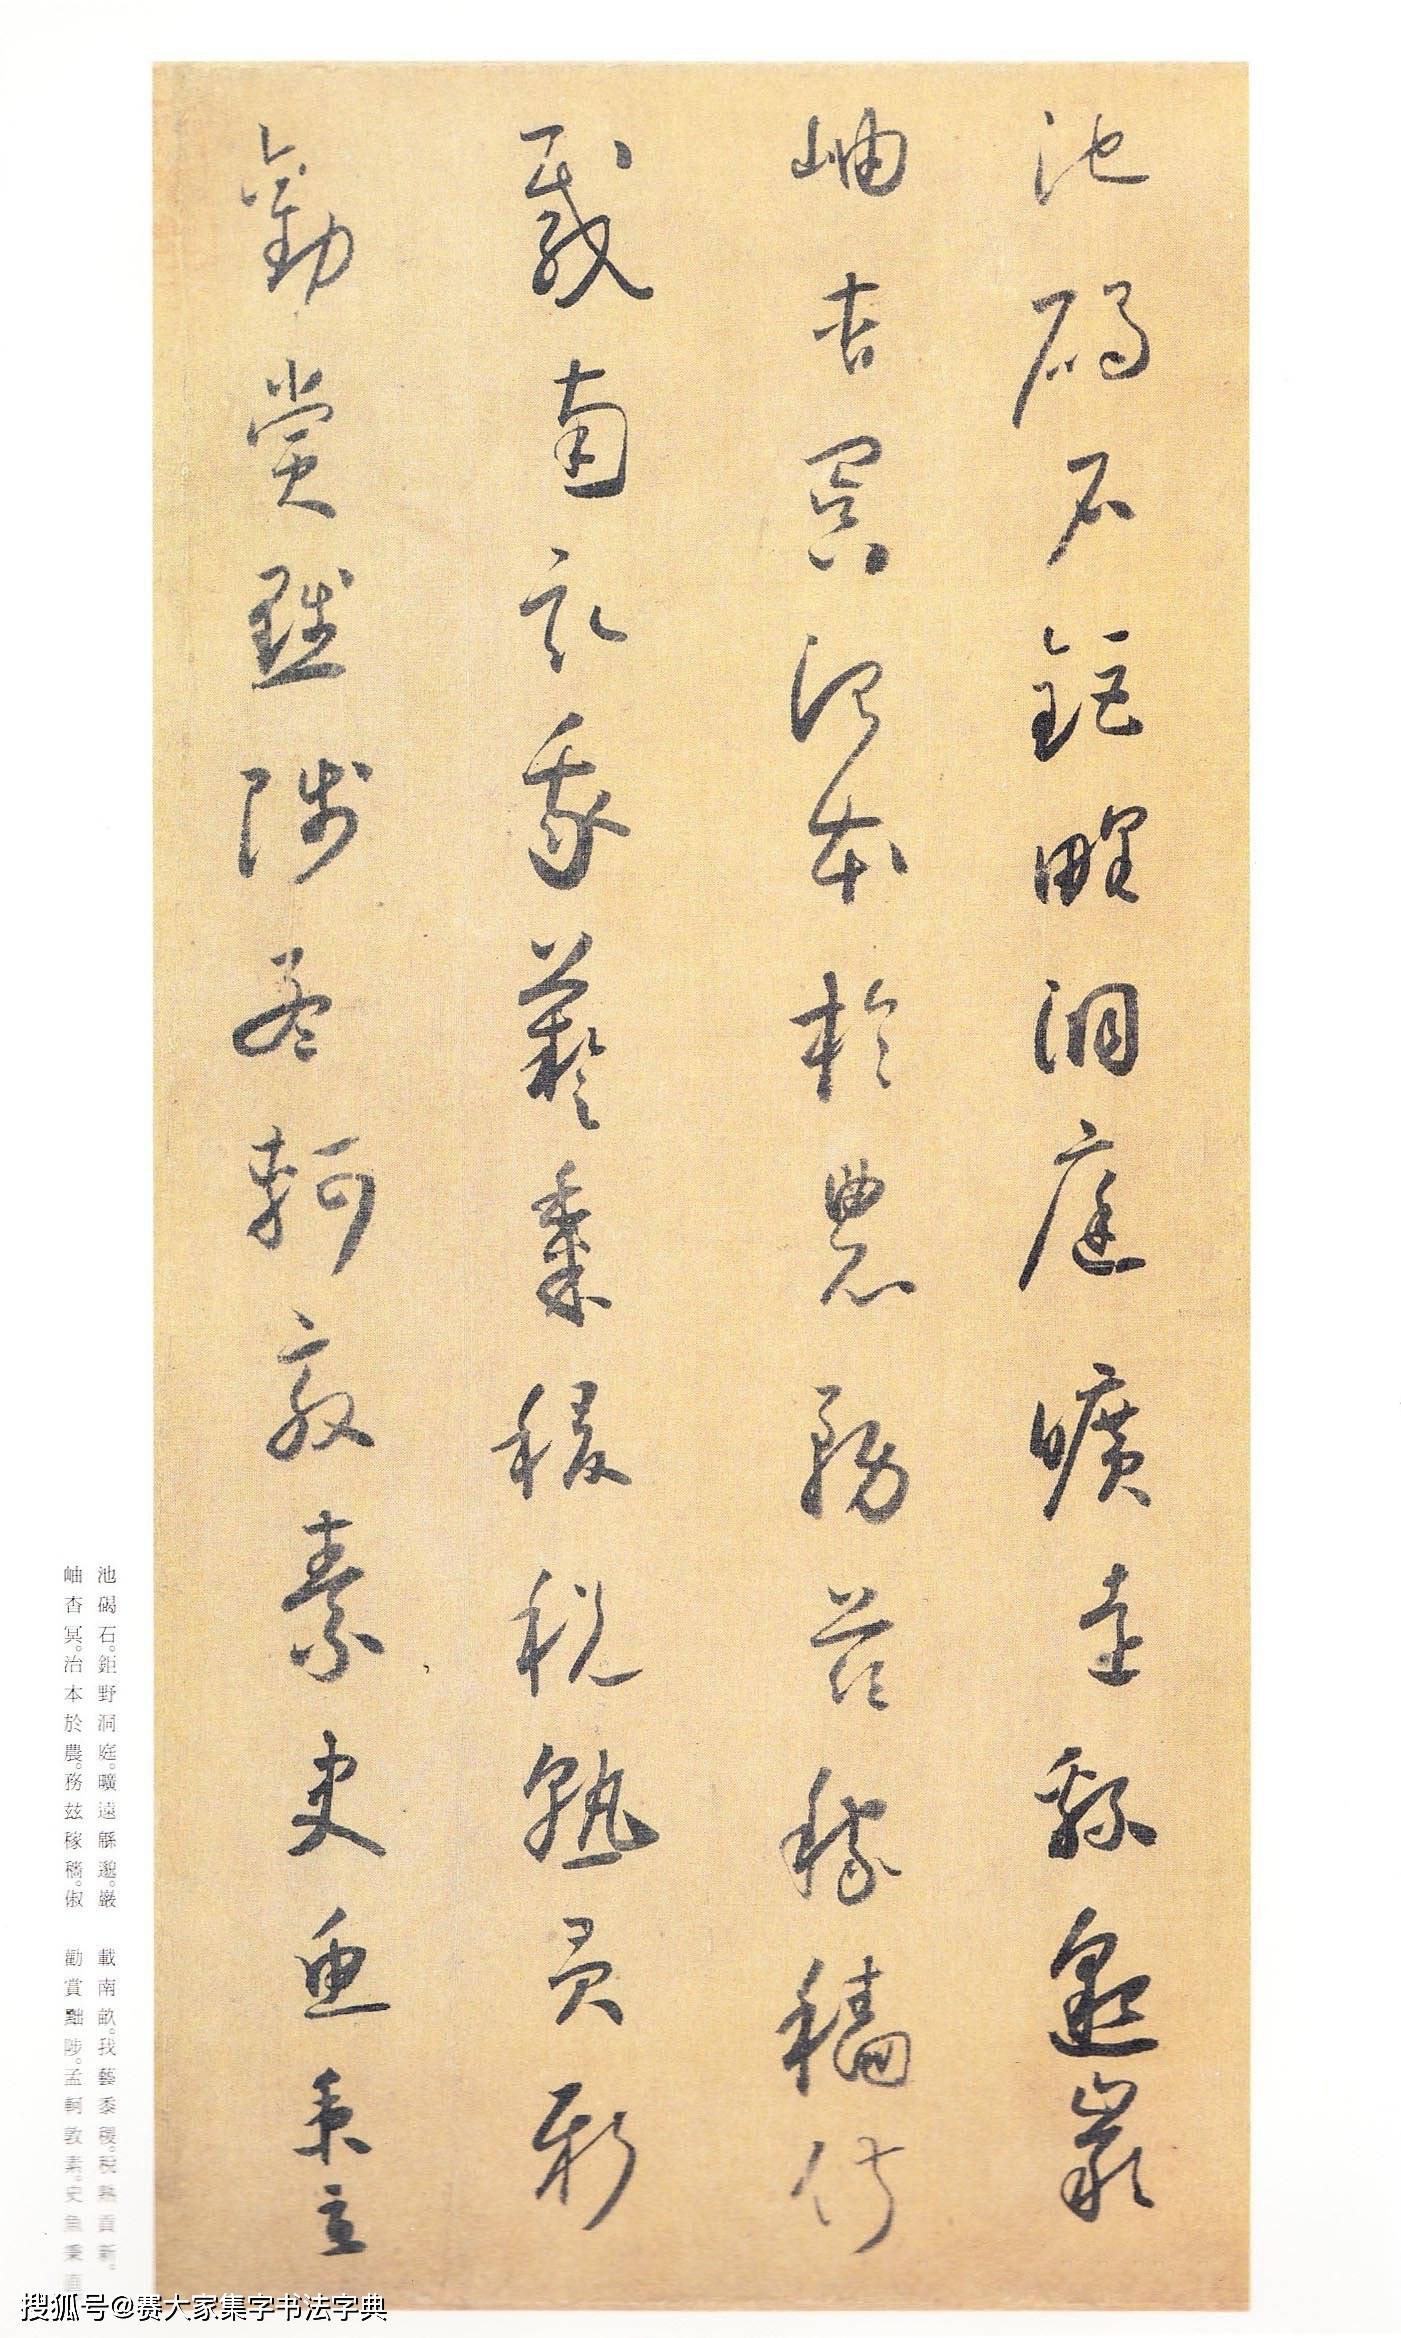 池碣石鉅野洞庭曠遠緜邈巖
岫杳冥治本於農務茲稼穡俶
載南畝我藝黍稷稅熟貢新
勸賞黜陟孟軻敦素史魚秉直
池碣石。鉅野洞庭。曠遠緜邈。巖
岫杳冥。治本於農。務茲稼穡。俶
載南畝。我藝黍稷。稅熟貢新。
勸賞黜陟。孟軻敦素。史魚秉直
搜狐号@赛大家集字书法字典